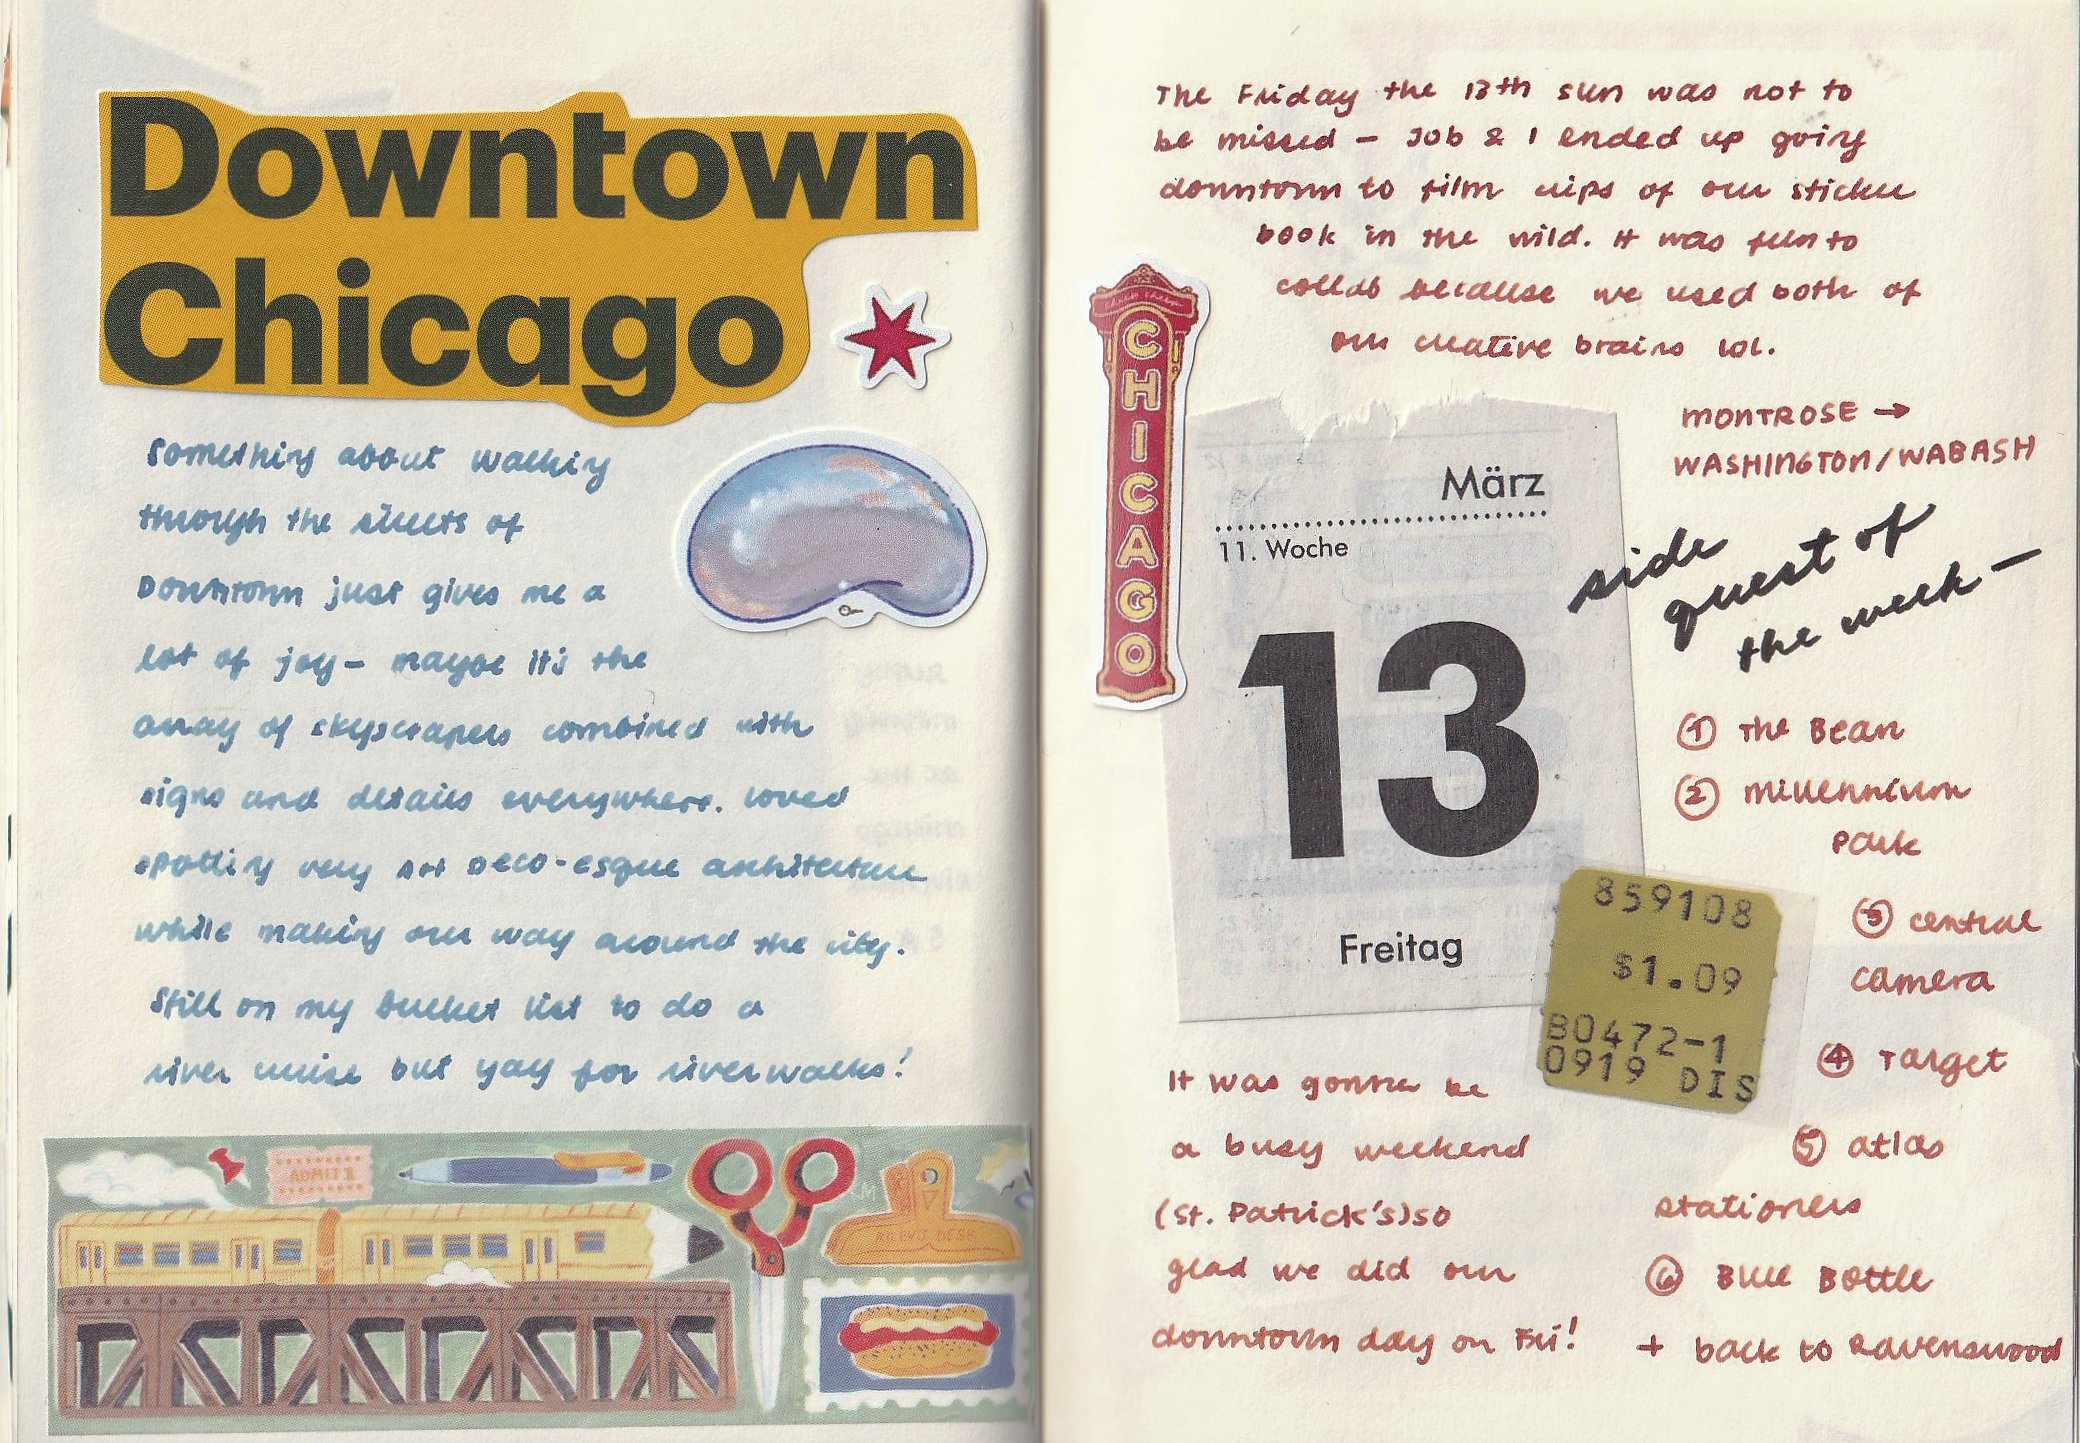 Downtown
Chicago
something about walking
through the streets of
Downtown just gives me a
lot of joy – maybe it's the
array of skyscrapers combined with
signs and details everywhere. loved
spotting very Art Deco-esque architecture
while making our way around the city.
Still on my bucket list to do a
river cruise but yay for riverwalks!
ADMIT 1
The Friday the 13th sun was not to
be missed – Job & I ended up going
downtown to film clips of our sticker
book in the wild. It was fun to
collab because we used both of
our creative brains lol.
CHICAGO
MONTROSE →
WASHINGTON/WABASH
März
11. Woche
13
Freitag
side
quest of
the week –
① The Bean
② millennium
park
③ central
camera
④ Target
⑤ atlas
stationers
⑥ Blue Bottle
+ back to Ravenswood
859108
$1.09
B0472-1
0919 DIS
It was gonna be
a busy weekend
(St. Patrick's) so
glad we did our
downtown day on Fri!